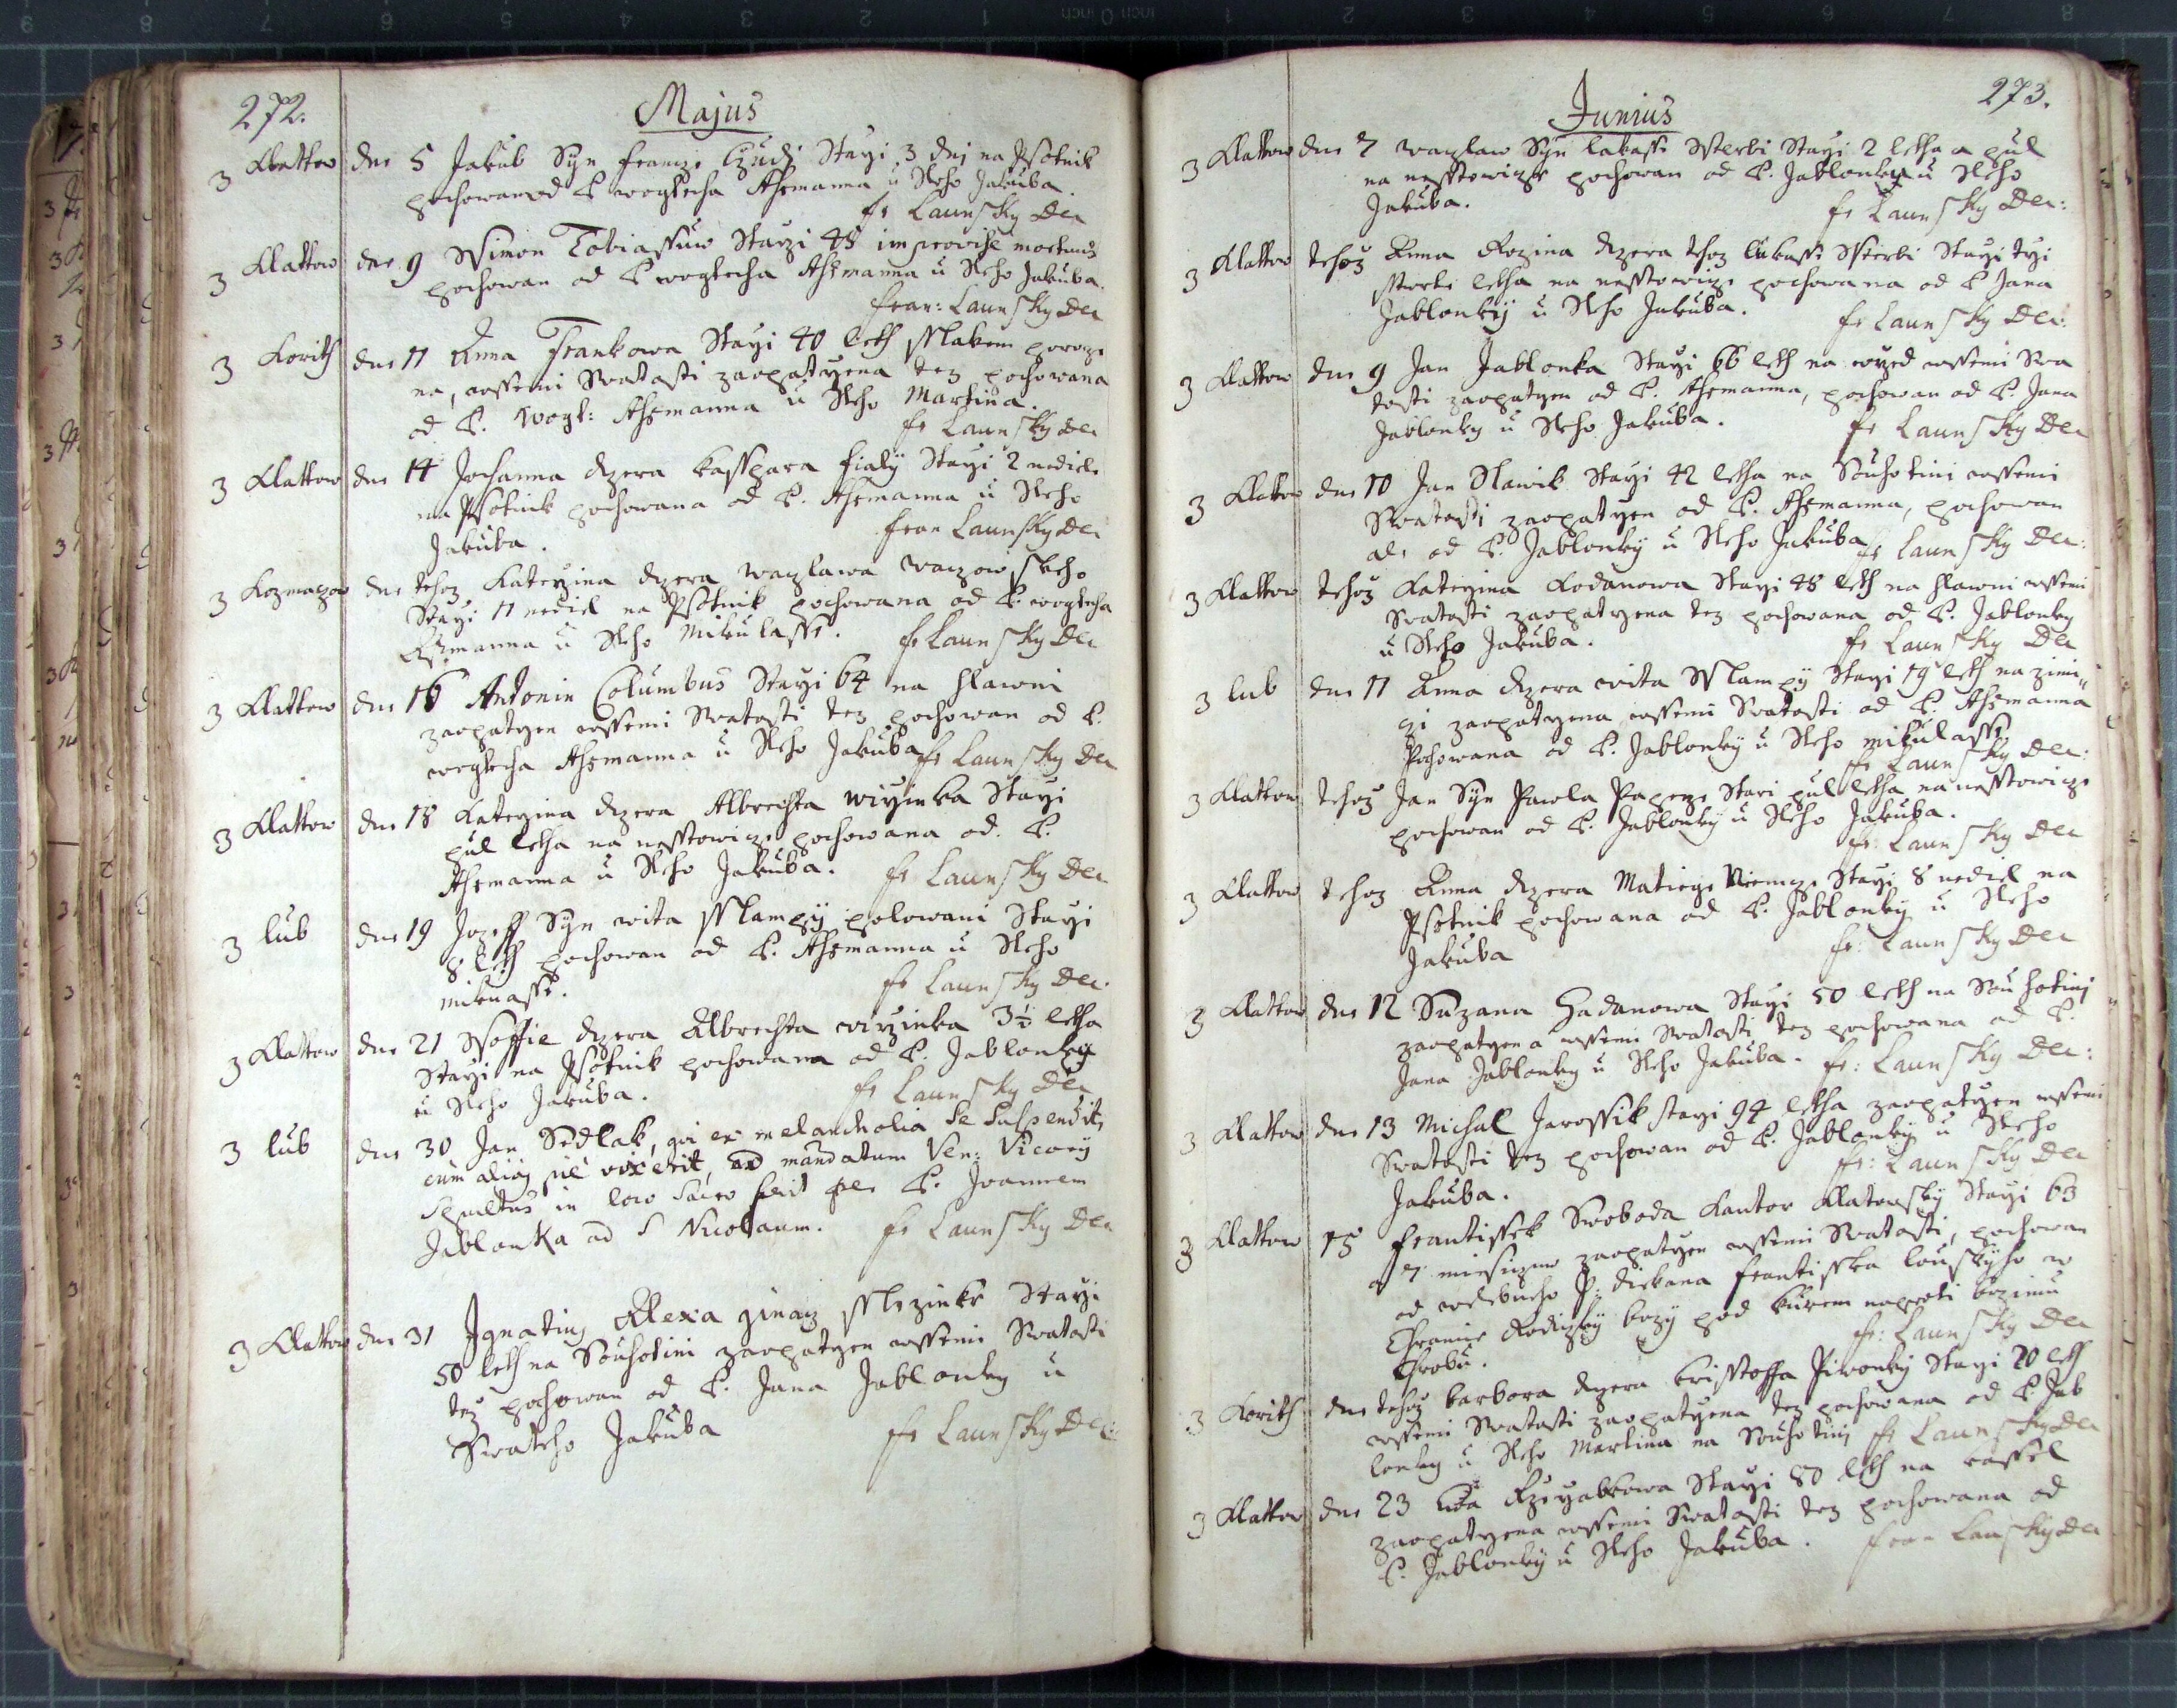 272.
Majus
z Klattow dne 5 Jakub Syn Francze Czudj Stařj 3 dnj na Psotnik
pochowan od P. Wogtecha Ahsmanna u Steho Jakuba.
fr Launsky Dec
z Klattow dne 9 Ssimon Tobiassuw Starzi 48 improvise mortuus
pochowan od P. Wogtecha Ahsmanna u Steho Jakuba.
fran: Launsky Dec
z Korith dne 11 Anna Frankowa Stařj 40 leth sslakem poraze
na, wssemi Swatosti zaopatřena tez pochowana
od P. Wogt: Ahsmanna u Steho Martina.
fr Launsky Dec
z Klattow dne 14 Johanna dczera Kasspara Fialÿ Stařj 2 nediele
na Psotnik pochowana od P. Ahsmanna u Steho
Jakuba.
fran Launsky Dec
z Kozmaczow dne tehoz Kateřina dczera Waczlawa Vaczowskeho
Stařj 11 nediel na Psotnik pochowana od P. Wogtecha
Ahsmanna u Steho Mikulasse.
fr Launsky Dec
z Klattow dne 16 Antonin Columbus Stařj 64 na hlawni
zaopatřen wssemi Swatosti tez pochowan od P.
Wogtecha Ahsmanna u Steho Jakuba fr Launsky Dec
z Klattow dne 18 Kateřina dczera Albrechta Wiřinka Stařj
pul letha na nesstowicze pochowana od P.
Ahsmanna u Steho Jakuba.
fr Launsky Dec
z Lub dne 19 Jozeff Syn Wita Sslampÿ polowani Stařj
8 leth pochowan od P. Ahsmanna u Steho
Mikuasse.
fr Launsky Dec.
z Klattow dne 21 Ssoffie dczera Albrechta Wiřinka 3½ letha
Stařj na Psotnik pochowana od P. Jablonky
u Steho Jakuba.
fr Launsky Dec
z Lub dne 30 Jan Sedlak, qvi ex melancholia Se Suspendit,
cum aliàs piè vixerit, ad mandatum Ven: Vicarÿ
Sepultus in loco Sacro fuit per P. Joannem
Jablonka ad S Nicolaum.
fr Launsky Dec
z Klattow dne 31 Ignatius Alexa ginacz Sslezinkr Stařj
50 leth na Souhotini zaopatřen wssemi Swatosti
tez pochowan od P. Jana Jablonky u
Swateho Jakuba
fr Launsky Dec:
273.
Junius
z Klattow dne 7 Waczlaw Syn Lukasse Ssterbi Stařj 2 letha a pul
na nesstowicze pochowan od P. Jablonky u Steho
Jakuba.
fr Launsky Dec:
z Klattow tehoz Anna Rozina dczera tehoz Lukasse Ssterbi Stařj třj
sstwrti letha na nesstowicze pochowana od P Jana
Jablonkÿ u Steho Jakuba.
fr Launsky Dec:
z Klattow dne 9 Jan Jablonka Stařj 66 leth na wřed wssemi Swa
tosti zaopatřen od P. Ahsmanna, pochowan od P. Jana
Jablonky u Steho Jakuba.
fr Launsky Dec
z Klattow dne 10 Jan Slawik Stařj 42 letha na Souhotini wssemi
Swatosti zaopatřen od P. Ahsmanna, pochowan
ale od P. Jablonkÿ u Steho Jakuba
fr Launsky Dec:
z Klattow tehoz Kateřina Rodanowa Stařj 48 leth na hlawni wssemi
Swatosti zaopatřena tez pochowana od P. Jablonky
u Steho Jakuba.
fr Launsky Dec
z Lub dne 11 Anna dczera Wita Sslampÿ Stařj 19 leth na zimi„
czi zaopatřena wssemi Swatosti od P. Ahsmanna
Pochowana od P. Jablonkÿ u Steho Mikulasse
fr Launsky Dec:
z Klattow tehoz Jan Syn Pawla Papeze Stari pul letha na nesstowicze
pochowan od P. Jablonkÿ u Steho Jakuba.
fr: Launsky Dec
z Klattow tehoz Anna dczera Matiege Niemcze Stařj 8 nediel na
Psotnik pochowana od P. Jablonky u Steho
Jakuba
fr: Launsky Dec
z Klattow dne 12 Suzana Hadanowa Stařj 50 leth na Souhotinj
zaopatřena wssemi Swatosti tez pochowana od P.
Jana Jablonky u Steho Jakuba. fr: Launsky Dec:
z Klattow dne 13 Michal Jarossik stařj 94 letha zaopatřen wssemi
Swatosti tez pochowan od P. Jablonky u Steho
Jakuba.
fr: Launsky Dec
z Klattow 15 Frantissek Swoboda Kantor Klatowsky Stařj 63
a 7 miesiczuw zaopatřen wssemi Swatosti, pochowan
od welebneho P: diekana Frantisska Lounskÿho w
Chramie Rodiczky bozÿ pod kurem naproti bozimu
hrobu.
fr: Launsky Dec
z Korith dne tehoz Barbora dczera Kristoffa Piwonky Stařj 20 leth
wssemi Swatosti zaopatřena tez pochowana od P Jab
lonky u Steho Martina na Souhotinj fr Launsky Dec
z Klattow dne 23 Ewa Rzeřabkowa Stařj 80 leth na kassel
zaopatřena wssemi Swatosti tez pochowana od
P. Jablonkÿ u Steho Jakuba.
fran Launsky Dec